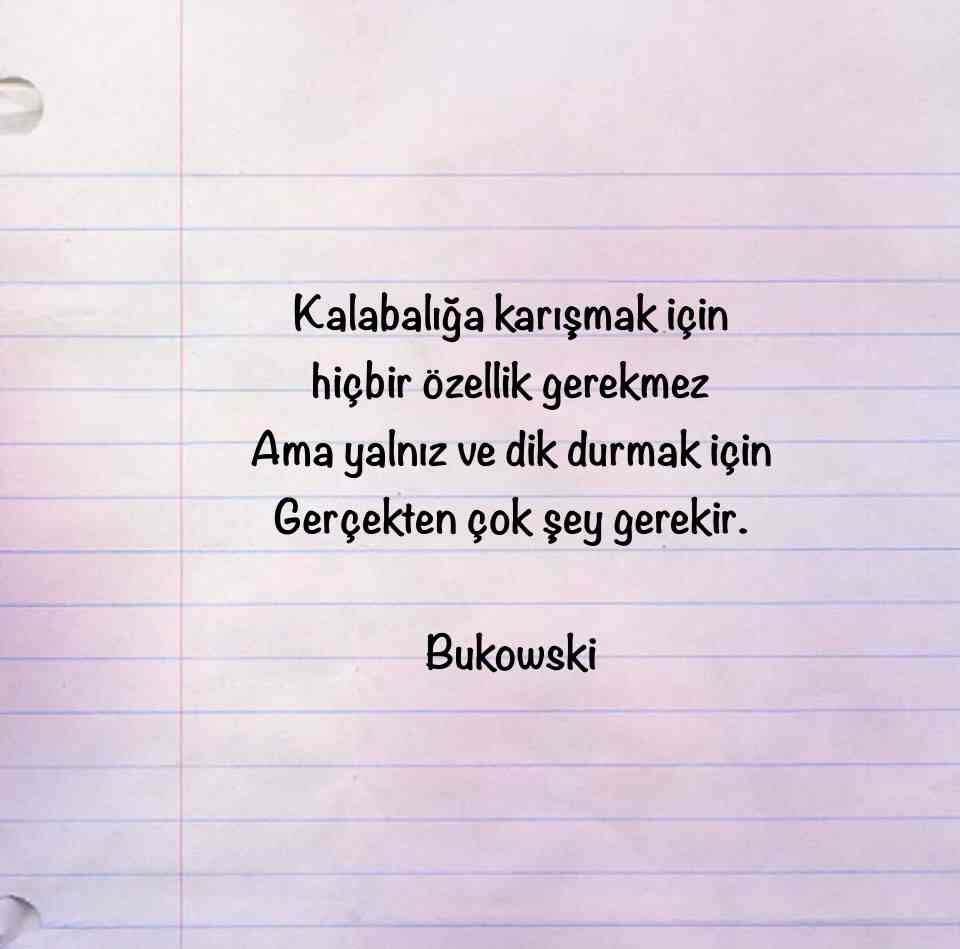 Kalabalığa karışmak için
hiçbir özellik gerekmez
Ama yalnız ve dik durmak için
Gerçekten çok şey gerekir.
Bukowski